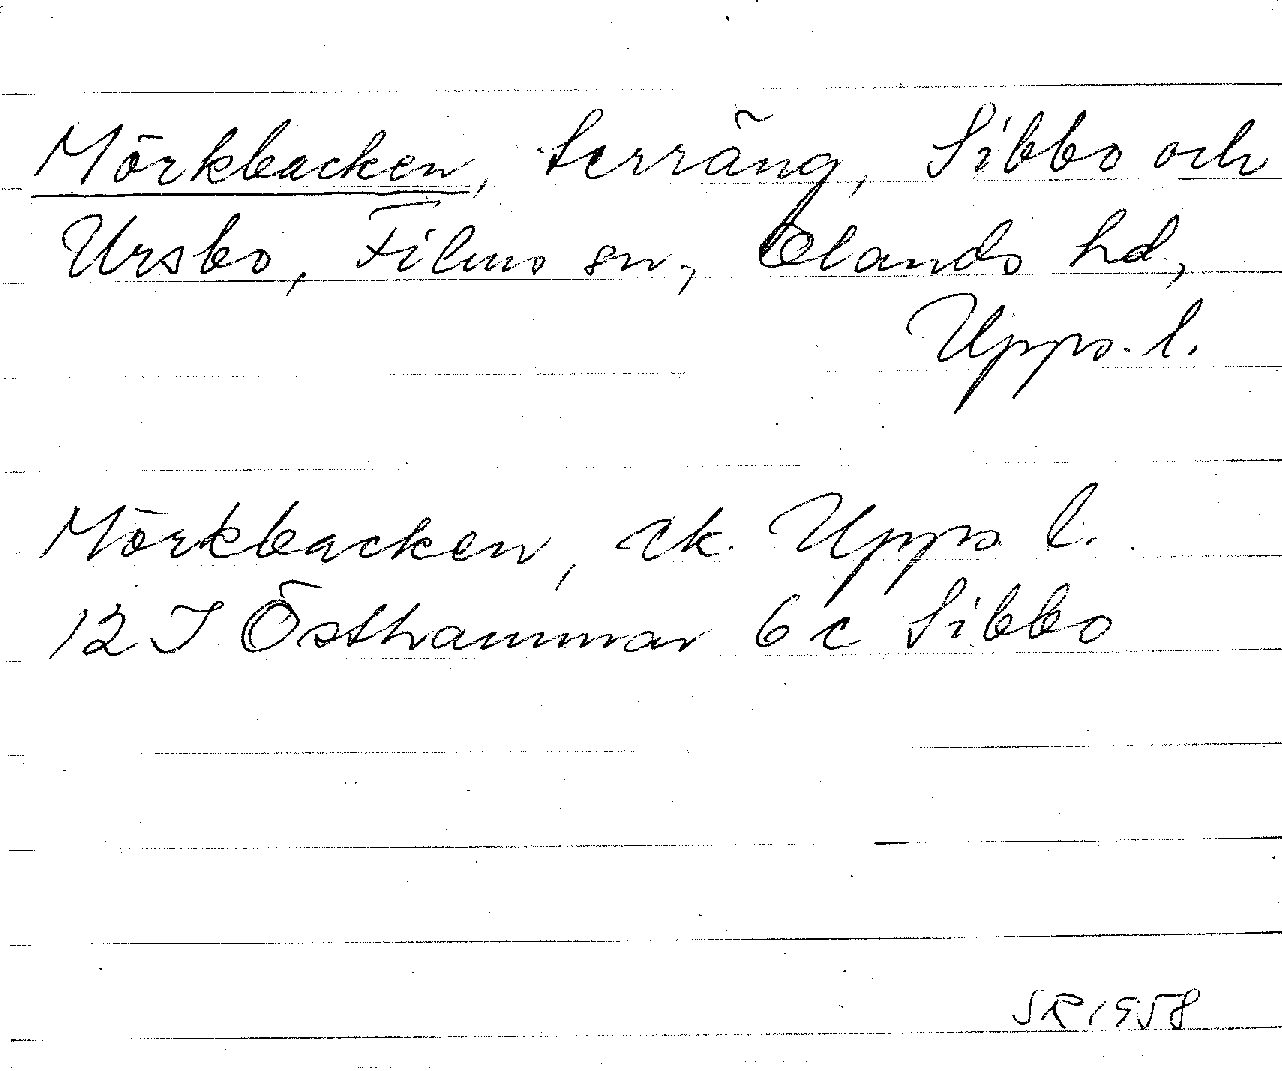 Mörkbacken, terräng, Sibbo och
Ursbo, Films sn, Olands hd,
Upps. l.
Mörkbacken, ek. Upps l.
12 I Östhammar 6 c Sibbo
SR 1958